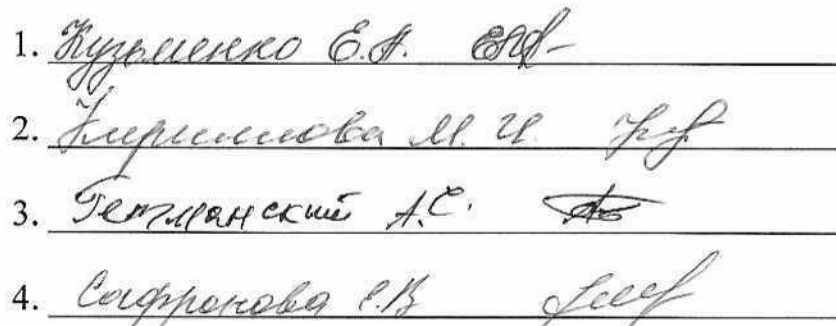 1. Кузьменко Е.А.
2. Кириллова М. И.
3. Гетманский А.С.
4. Сафронова Е.В